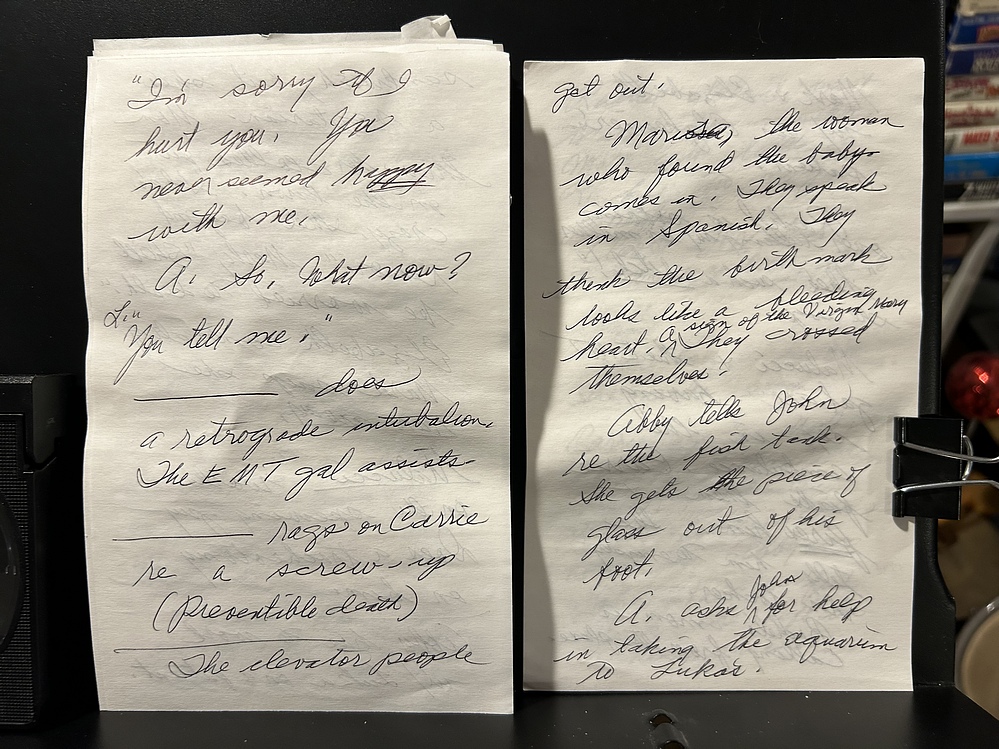 "I'm sorry if I
hurt you. You
never seemed happy
with me.
A. So, What now?
L. "
You tell me."
does
a retrograde intubation.
The EMT gal assists.
rags on Carrie
re a screw-up
(Preventible death)
The elevator people
get out.
Marissa, the woman
who found the baby
comes in. They speak
in Spanish. They
think the birth mark
looks like a bleeding
heart. A sign of the Virgin Mary
They crossed
themselves.
Abby tells John
re the fish tank.
She gets the piece of
glass out of his
foot.
A. asks John for help
in taking the aquarium
to Luka's.